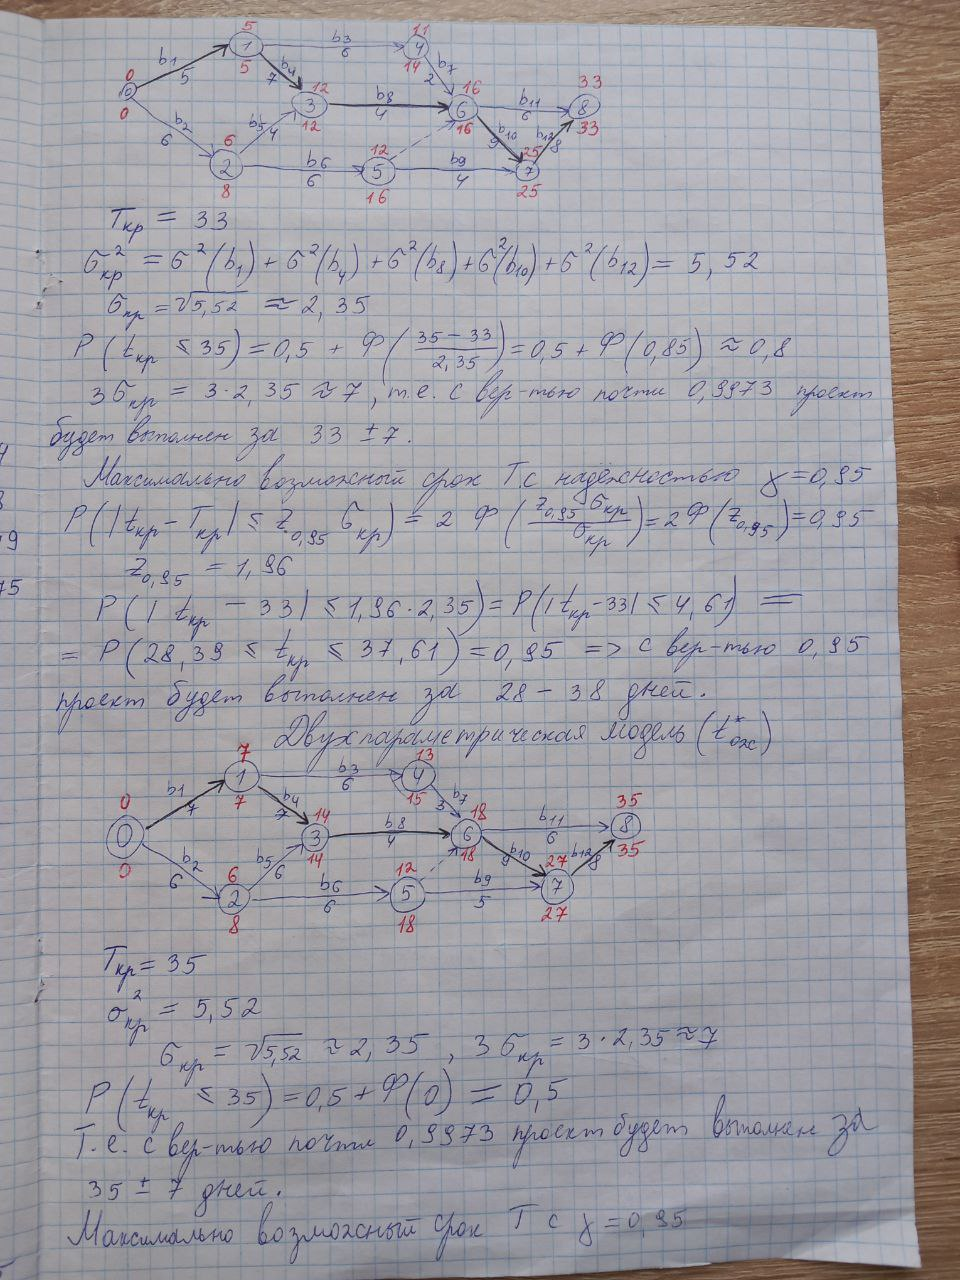 5 11
b1 5 1 5 b3 6 4 14
0 0 0 b4 7 12 3 12 b8 4 b7 2 16 6 16 b11 6 33 8 33
b2 6 6 2 8 b5 4 b6 6 12 5 16 b9 4 b10 9 25 7 25 b12 8
Tкр = 33
σкр² = σ²(b1) + σ²(b4) + σ²(b8) + σ²(b10) + σ²(b12) = 5,52
σкр = √5,52 ≈ 2,35
P(tкр ≤ 35) = 0,5 + Ф((35 – 33)/2,35) = 0,5 + Ф(0,85) ≈ 0,8
3σкр = 3·2,35 ≈ 7, т.е. с вер-тью почти 0,9973 проект
будет выполнен за 33 ± 7.
Максимально возможный срок T с надёжностью γ = 0,95
P(|tкр – Tкр| ≤ Z0,95 σкр) = 2 Ф(Z0,95 σкр/σкр) = 2Ф(Z0,95) = 0,95
Z0,95 = 1,96
P(|tкр – 33| ≤ 1,96·2,35) = P(|tкр – 33| ≤ 4,61) =
= P(28,39 ≤ tкр ≤ 37,61) = 0,95 => с вер-тью 0,95
проект будет выполнен за 28 – 38 дней.
Двухпараметрическая модель (t*ож)
7 1 7 b3 6 13 4 15
0 0 0 b1 7 b4 7 14 3 14 b8 4 b7 3 18 6 18 b11 6 35 8 35
b2 6 6 2 8 b5 6 b6 6 12 5 18 b9 5 b10 9 27 7 27 b12 8
Tкр = 35
σкр² = 5,52
σкр = √5,52 ≈ 2,35, 3σкр = 3·2,35 ≈ 7
P(tкр ≤ 35) = 0,5 + Ф(0) = 0,5
Т.е. с вер-тью почти 0,9973 проект будет выполнен за
35 ± 7 дней.
Максимально возможный срок T с γ = 0,95